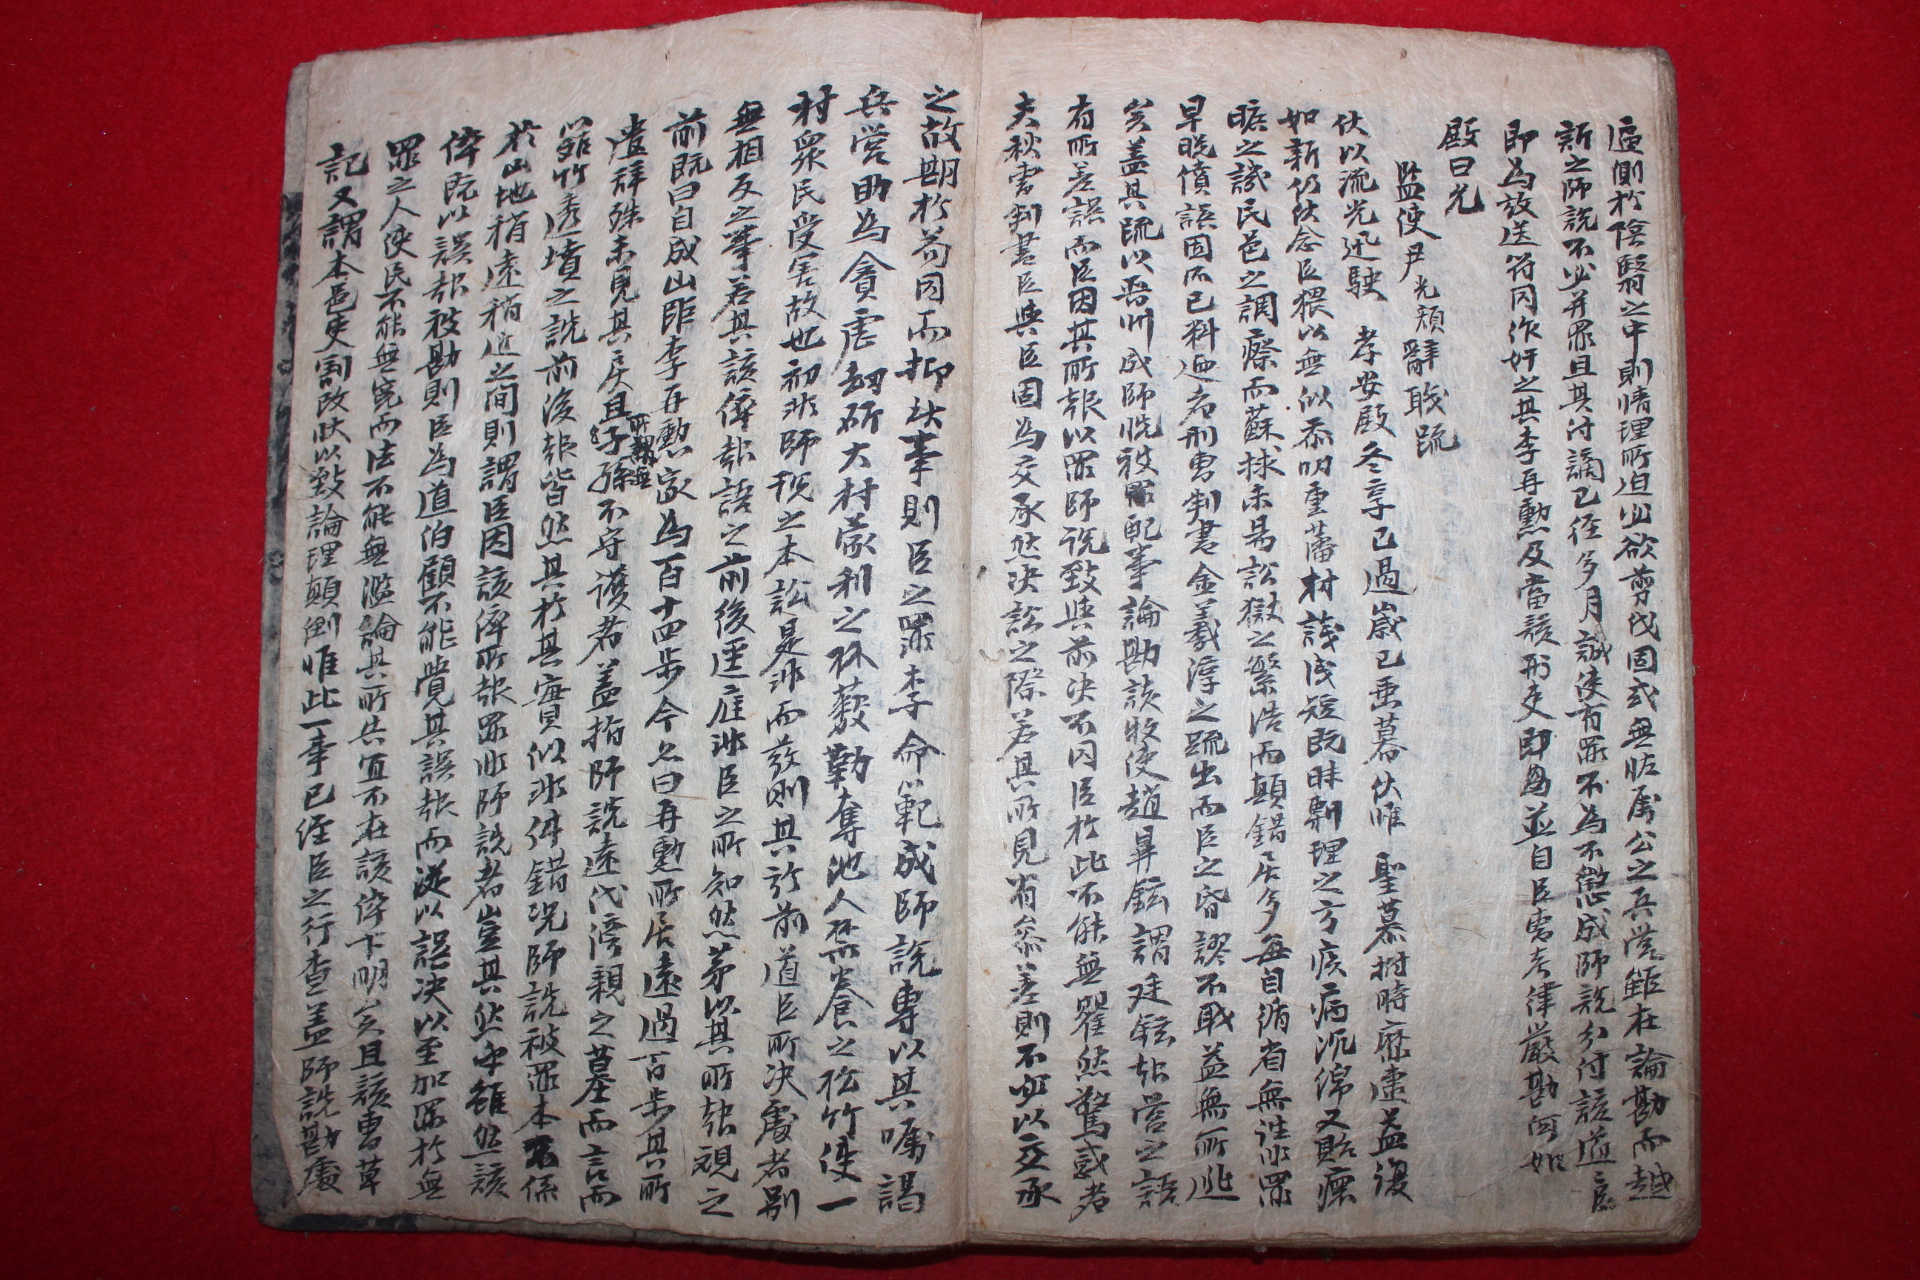 逼側於陰翳之中則情理所迫必欲剪伐固或無怪屬公之兵營雖在論勘而越
訴之師說不必并罪且其付謫已經多月誠使有罪不爲不懲成師說分付該道臣
即爲放送符同作奸之其李再勳及當該刑吏即爲並自臣曹考律嚴勘何如
啟曰允
監使尹光顔辭職疏
伏以流光迅駛 孝安殿冬享已過歲已垂暮伏惟 聖慕树時靡逮益復
如新仍伏念臣猥以無似忝叨重藩材譾識短既昧剸理之方疾病沉綿又貽瘝
曠之譏民邑之凋瘵而蘇捄未易訟獄之繁浩而顛錯居多每自循省無往非罪
早晚僨誤固所已料迺者刑曹判書金羲淳之疏出而臣之昏謬不職益無所逃
矣盖其疏以晋州成師說被罪配事論勘該牧使趙鼻鉉謂廷鉉報營之誤
有所差誤而臣因其所報以罪師說致與前決不同臣於此不能無瞿然驚惑者
夫秋曹判書臣與臣固爲交承然決訟之際若其所見省有參差則不必以交承
之故期於苟同而抑玆事則臣之罪李命範成師說專以其囑謁
兵營助爲貪虐刼斫大村蒙利之林藪勤奪池人無養之松竹使一
村衆民受害故也初非師說之本訟是非而發則其於前道臣所決處者別
無相反之事若其該倅報語之前後逕庭非臣之所知然茅以其所報視之
前既曰自成山距李再勳家爲百十四步今又曰再勳所居遠過百步其所
遣辞殊未見其戾且所謂無子孫不守護者盖指師說遠代傍親之墓而言而
雖竹透墳之說前後報皆然其於其實似非舛錯況師說被罪本不係
於山地稍遠稍近之間則謂臣因該倅所報罪非師說者豈其然乎雖然該
倅既以誤報被勘則臣爲道伯顧不能覺其誤報而遂以誤決以至加罪於無
罪之人使民不能無寃而法不能無濫論其所失宜不在該倅下明矣且該曹草
記又謂本邑吏割改狀以致論理顛倒惟此一事已經臣之行查盖師說勘處